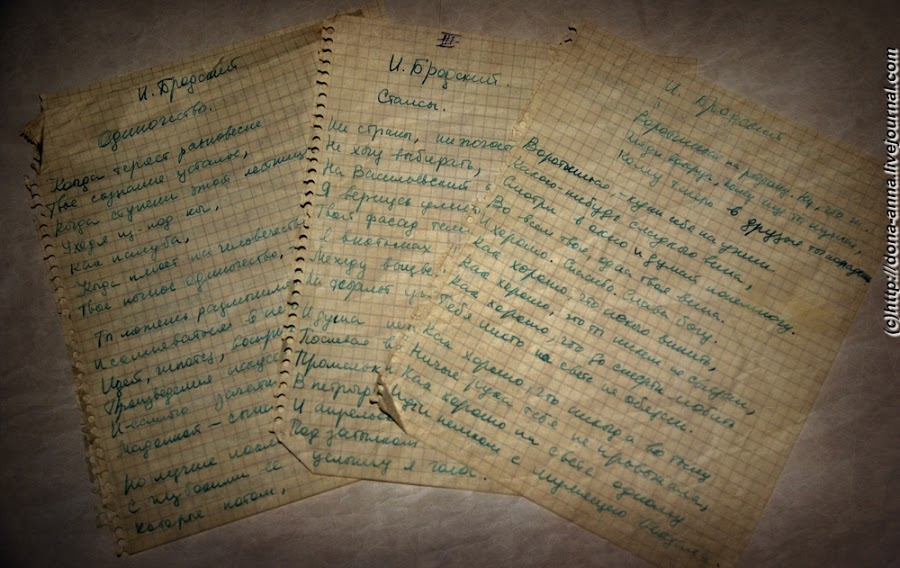 И. Бродский
Одиночество.
Когда теряет равновесие
Твое сознание усталое,
Когда ступени этой лестницы
Уходя из-под ног,
как палуба,
Когда плюет на человечество
Твое ночное одиночество,
Ты можешь размышля
И сомневаться в не
Идей, гипотез, воспри
Произведения искусс
зачати
Мадонной – сына
Но лучше покло
С глубокими ее
Которые потом,
III
И. Бродский.
Стансы.
Ни страны, ни погост
Не хочу выбирать,
На Васильевский о
Я вернусь умира
Твой фасад темн
я впотьмах
Между выцве
На асфальт
И душа неп
Поспевая в
Промелькн
В петрогр
И апрельск
Под затылком
услышу я голос.
И. Бродский
Воротишься на родину. Ну, что ж
Гляди вокруг, кому ещё ты нужен,
Кому теперь в друзья ты попадешь
Воротишься - купи себе на ужин
Какого-нибудь сладкого вина,
Смотри в окно и думай понемногу.
Во всем твоя, одна твоя вина.
И хорошо. Спасибо. Слава богу.
Как хорошо, что некого винить,
Как хорошо, что ты никем не связан,
Как хорошо, что до смерти любить
Тебя никто на свете не обязан.
Как хорошо, что никогда во тьму
Ничья рука тебя не провожала,
Как хорошо на свете одному
Идти пешком с шумящего вокзала
(c)http://dona-anna.livejournal.com